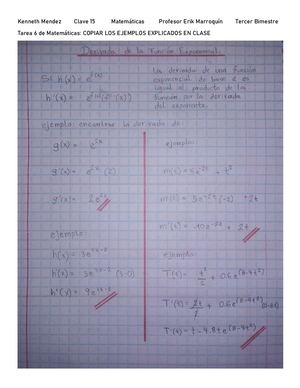 Kenneth Mendez Clave 15 Matemáticas Profesor Erik Marroquín Tercer Bimestre
Tarea 6 de Matemáticas: COPIAR LOS EJEMPLOS EXPLICADOS EN CLASE
Derivada de la Función Exponencial.
Si h(x) = e^(f(x))
h'(x) = e^(f(x)) (f'(x))
La derivada de una función
exponencial de base e es
igual al producto de la
función por la derivada
del exponente.
ejemplo: encontrar la derivada de:
g(x) = e^(2x)
g'(x) = e^(2x) (2)
g'(x) = 2e^(2x)
ejemplo:
h(x) = 3e^(3x-2)
h'(x) = 3e^(3x-2) (3-0)
h'(x) = 9e^(3x-2)
ejemplo:
m(t) = 5e^(-2t) + t²
m'(t) = 5e^(-2t) (-2) + 2t
m'(t) = -10e^(-2t) + 2t
Ejemplo:
T(t) = t²/2 + 0.6e^(8-4t²)
T'(t) = 2t/2 + 0.6e^(8-4t²)(0-8t)
T'(t) = t - 4.8te^(8-4t²)